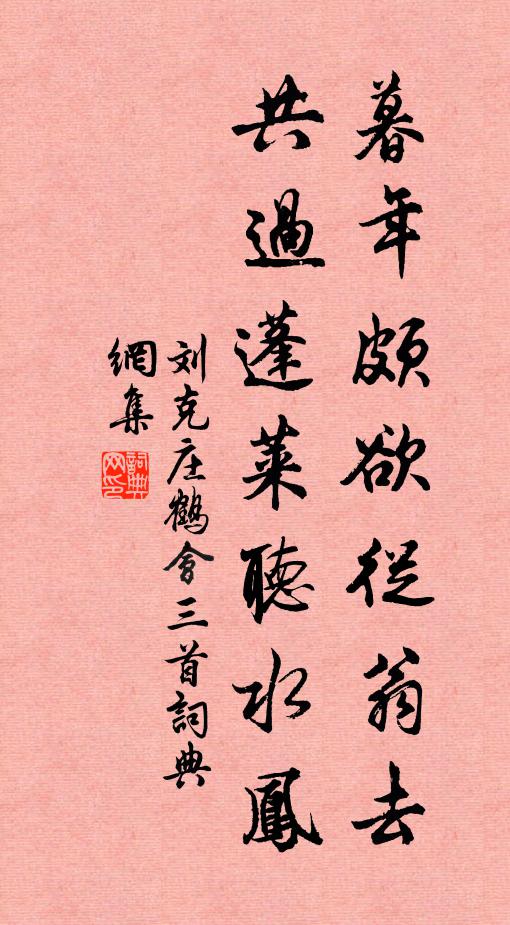 暮年頗欲從翁去
共過蓬萊聽水鳳
刘克庄鶴會三首詞典
網集
詞典
网印